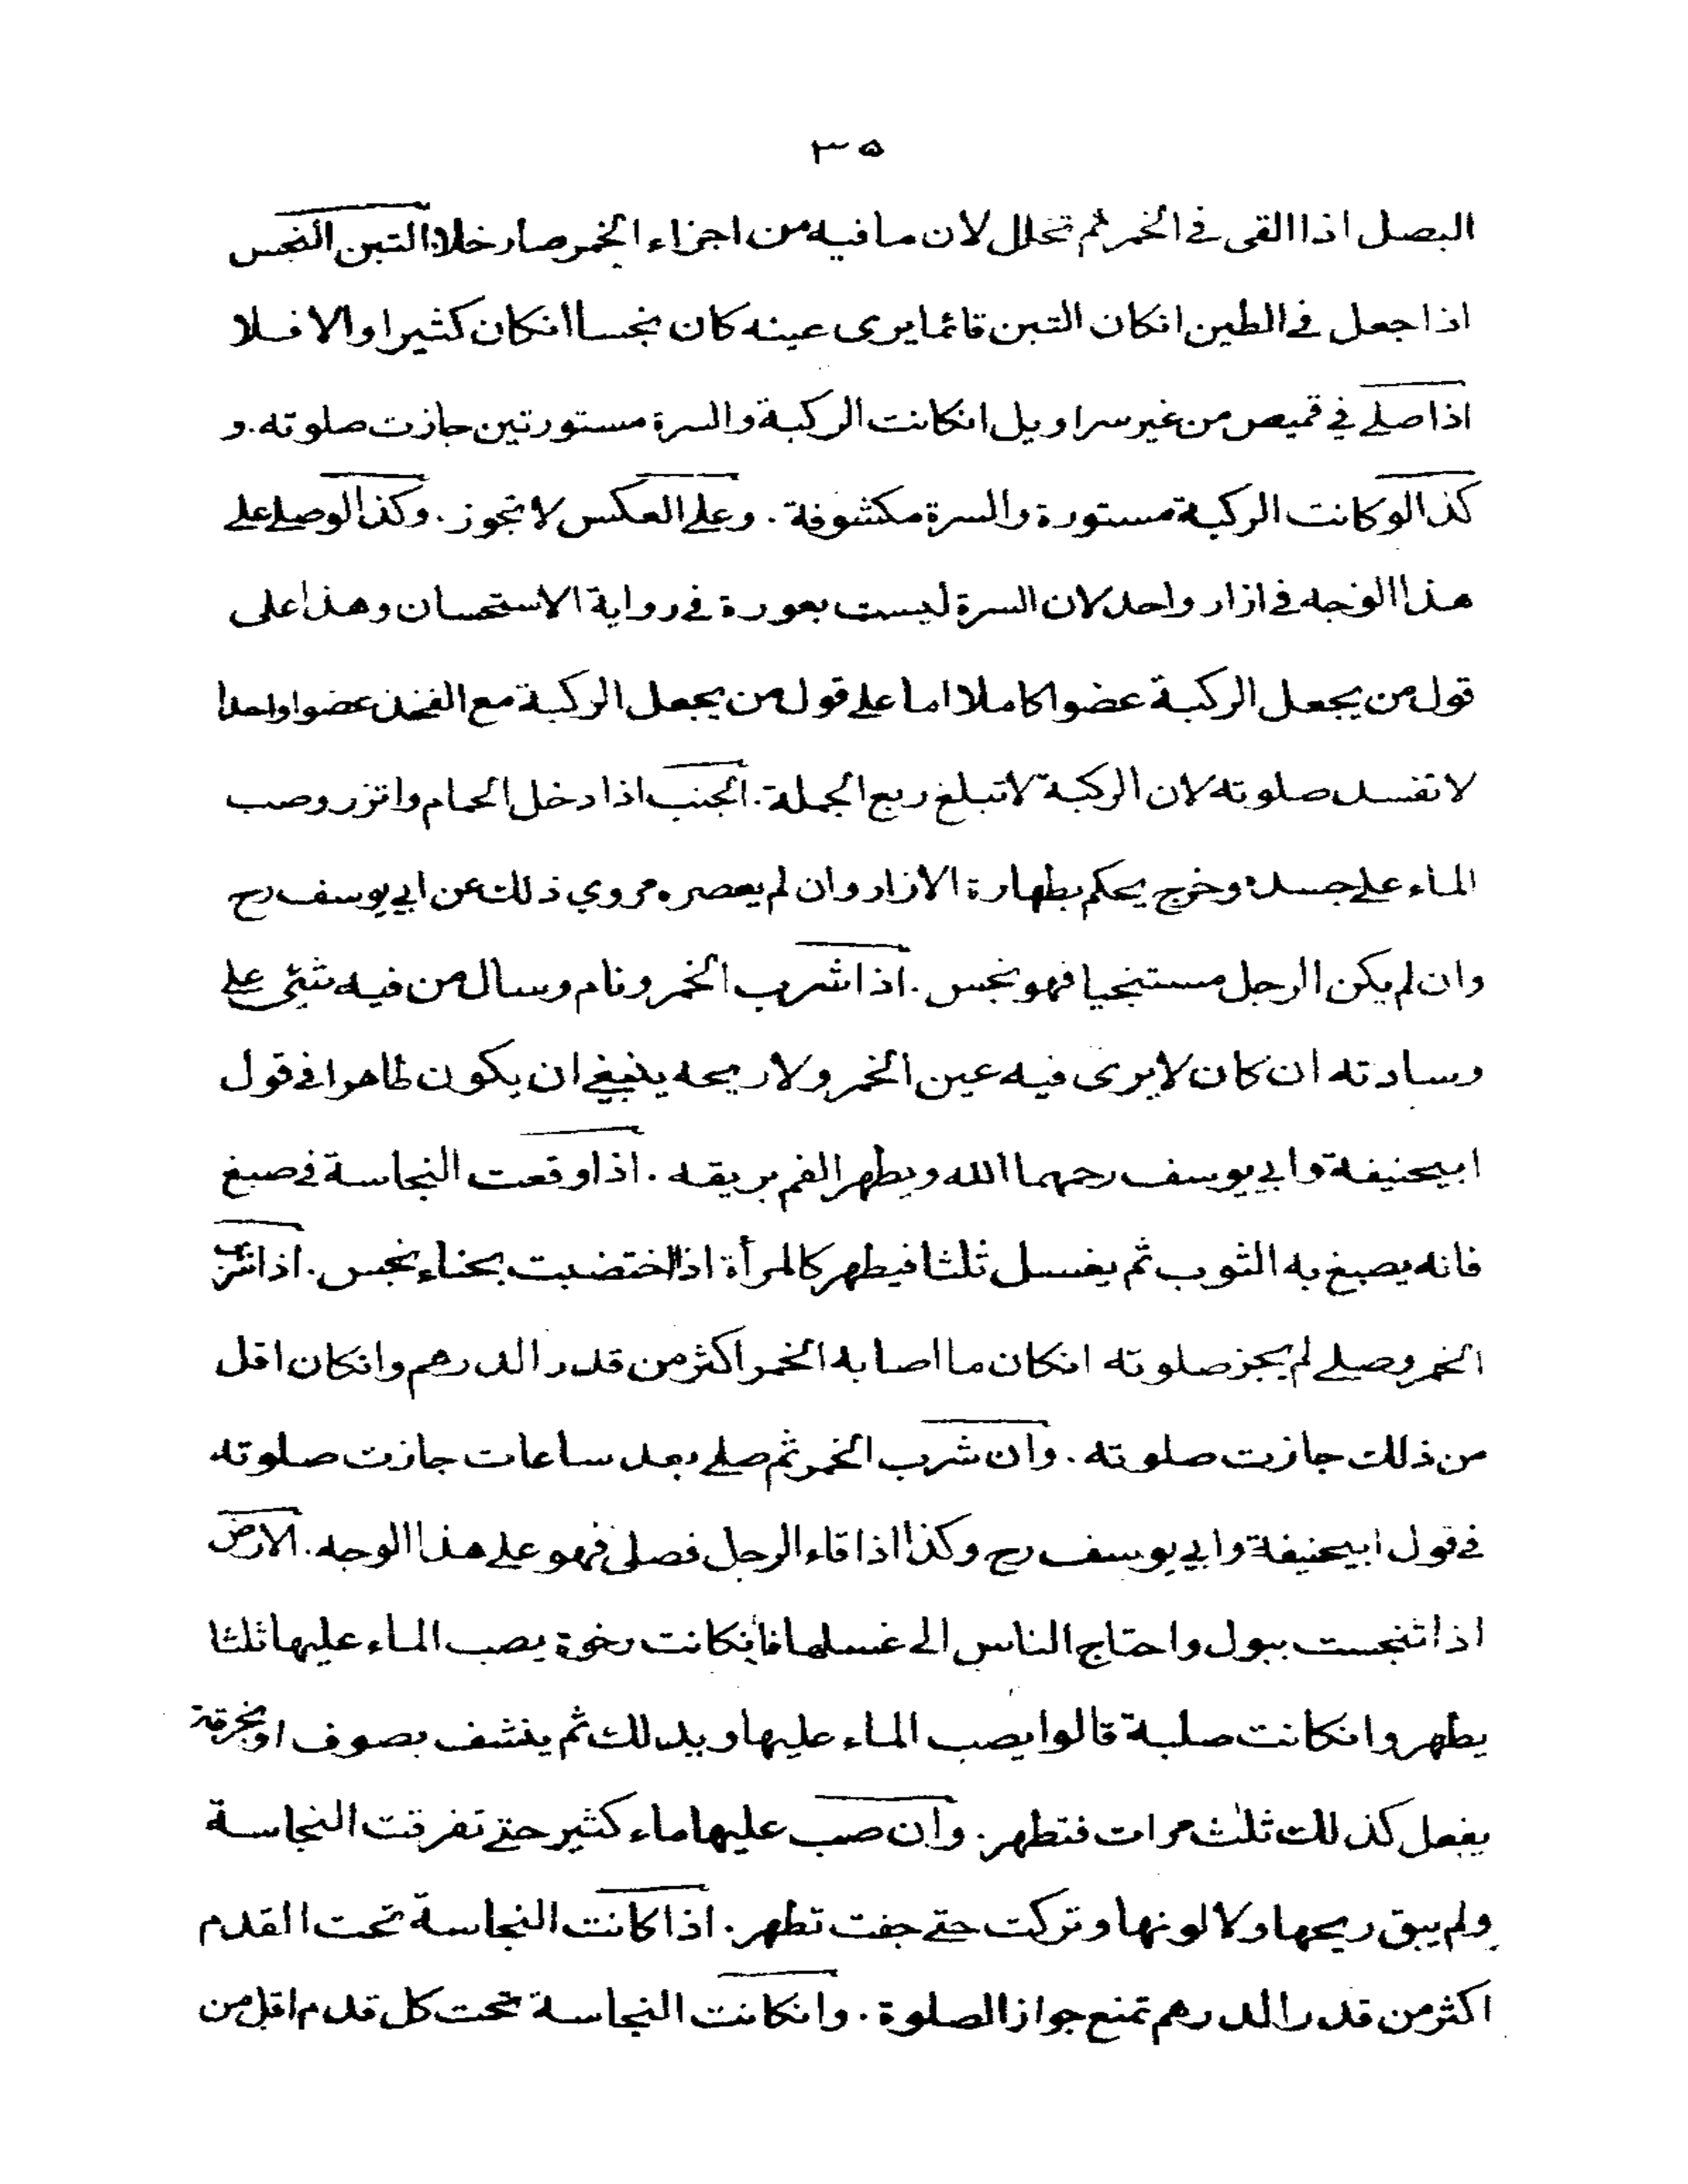 ٣٥
البصل اذا القى فى الخمر ثم تخلل لان ما فيه من اجزاء الخمر صار خلا التبن النجس
اذا جعل فى الطين انكان التبن قائما يرى عينه كان نجسا انكان كثيرا والا فلا
اذا صلے في قميص من غير سراويل انكانت الركبة والسرة مستورتين جازت صلوته. و
كذا لو كانت الركبة مستورة والسرة مكشوفة. وعلے العكس لا تجوز. وكذا لو صلے علے
هذا الوجه فى ازار واحد لان السرة ليست بعورة فى رواية الاستحسان وهذا على
قول من يجعل الركبة عضوا كاملا اما علے قول من يجعل الركبة مع الفخذ عضوا واحدا
لا تفسد صلوته لان الركبة لا تبلغ ربع الجملة. الجنب اذا دخل الحمام واتزر وصب
الماء علے جسده وخرج يحكم بطهارة الازار وان لم يعصره مروي ذلك عن ابي يوسف رح
وان لم يكن الرجل مستنجيا فهو نجس. اذا شرب الخمر ونام وسال من فيه شئ علے
وسادته ان كان لا يرى فيه عين الخمر ولا ريحه ينبغي ان يكون طاهرا فى قول
ابيحنيفة وابي يوسف رحمهما الله ويطهر الفم بريقه. اذا وقعت النجاسة فى صبغ
فانه يصبغ به الثوب ثم يغسل ثلثا فيطهر كالمرأة اذا اختضبت بحناء نجس. اذا شرب
الخمر وصلے لم يجز صلوته انكان ما اصابه الخمر اكثر من قدر الدرهم وانكان اقل
من ذلك جازت صلوته. وان شرب الخمر ثم صلے بعد ساعات جازت صلوته
فى قول ابيحنيفة وابي يوسف رح وكذا اذا قاء الرجل فصلى فهو علے هذا الوجه. الارض
اذا تنجست ببول واحتاج الناس الى غسلها فانكانت رخوة يصب الماء عليها ثلثا
يطهر وانكانت صلبة قالوا يصب الماء عليها ويدلك ثم ينشف بصوف او بخرقة
يفعل كذلك ثلث مرات فتطهر. وان صب عليها ماء كثير حتے تفرقت النجاسة
ولم يبق ريحها ولا لونها وتركت حتے جفت تطهر. اذا كانت النجاسة تحت القدم
اكثر من قدر الدرهم تمنع جواز الصلوة. وانكانت النجاسة تحت كل قدم اقل من